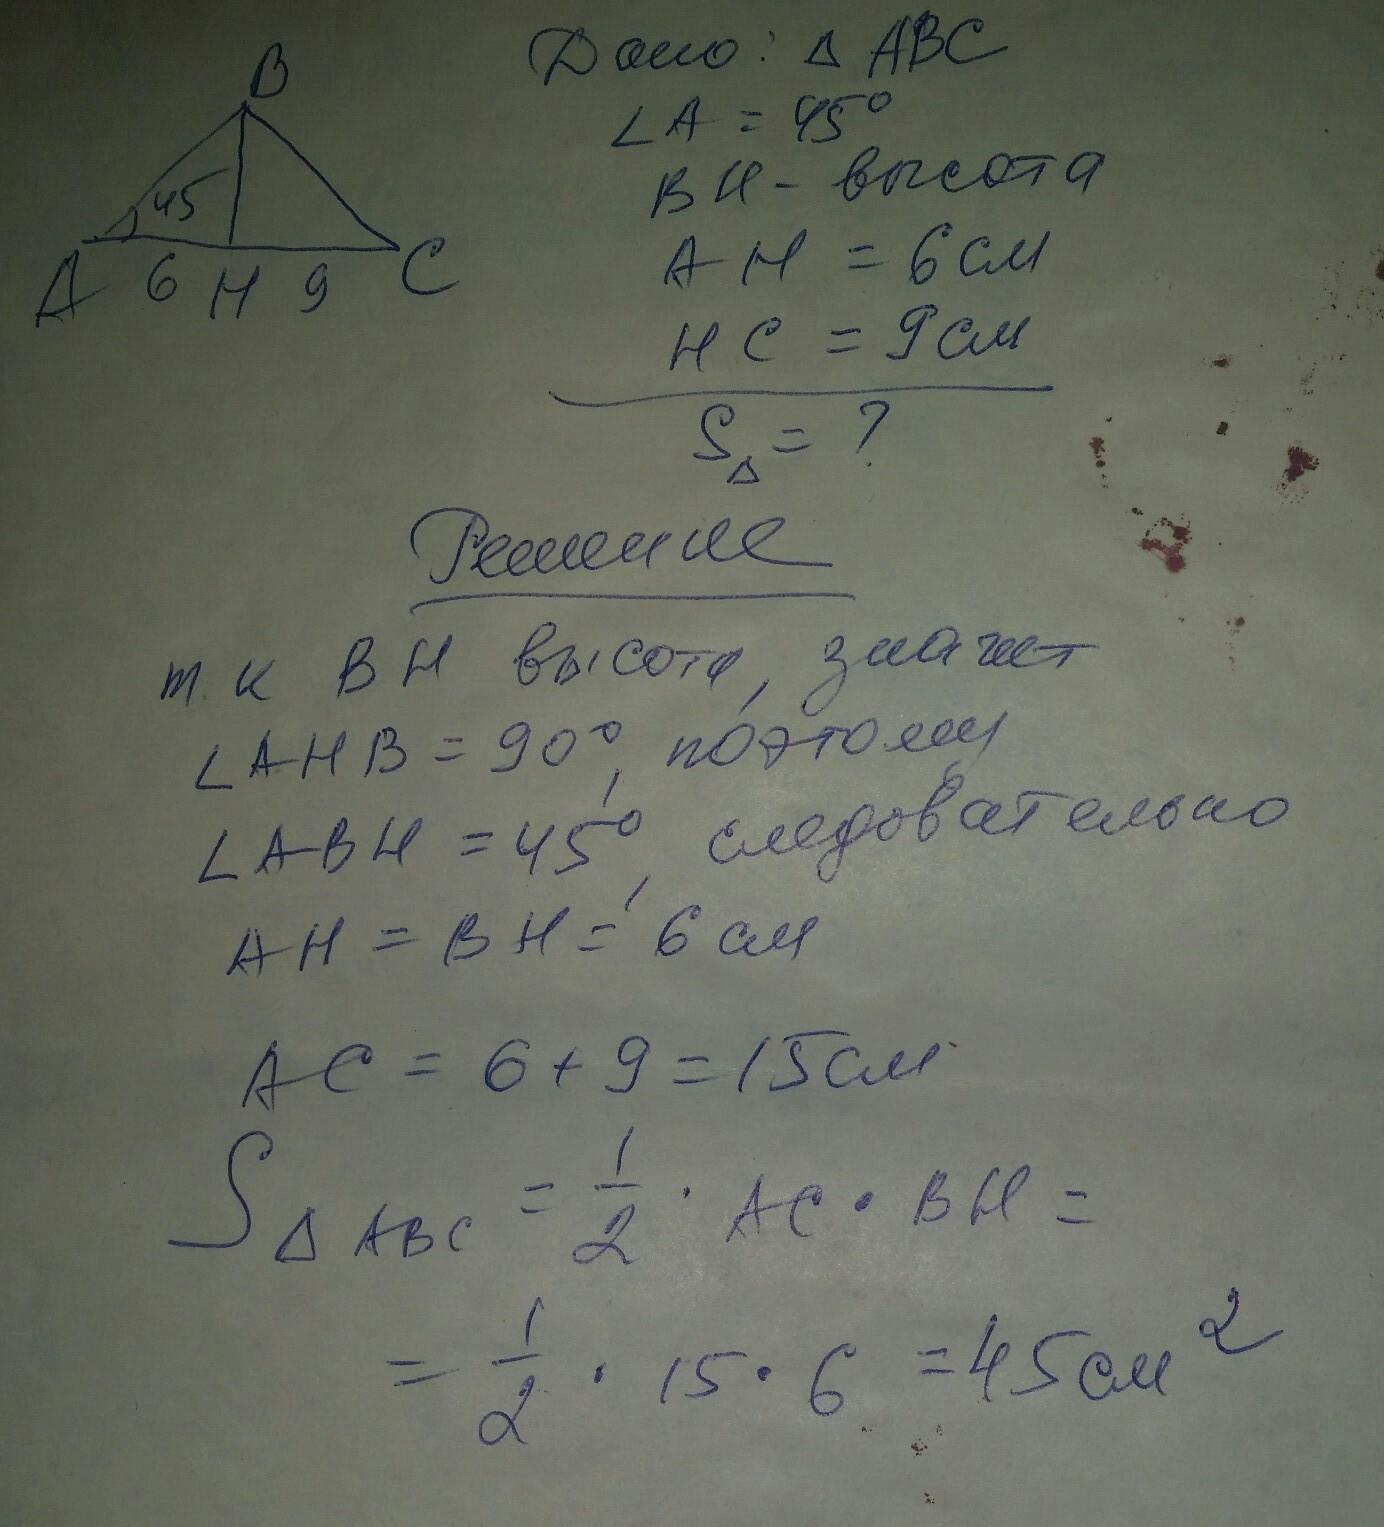 B
45
A 6 H 9 C
Дано: Δ ABC
∠A = 45°
BH - высота
AH = 6 см
HC = 9 см
S Δ = ?
Решение
т.к BH высота, значит
∠AHB = 90°, поэтому
∠ABH = 45°, следовательно
AH = BH = 6 см
AC = 6 + 9 = 15 см
S Δ ABC = 1/2 · AC · BH =
= 1/2 · 15 · 6 = 45 см²